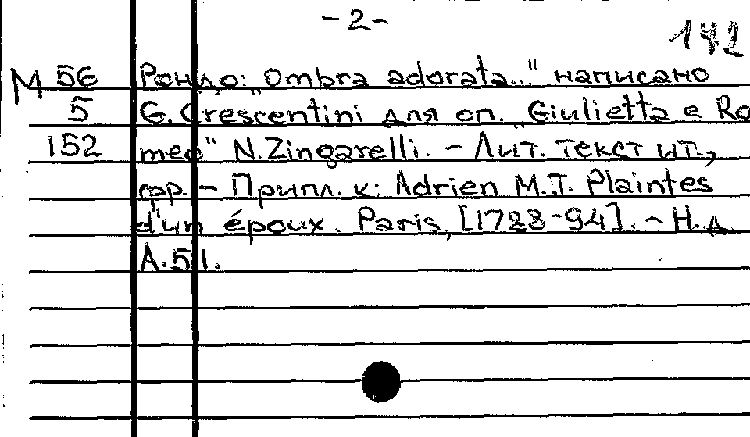 -2-
142
М 56 Рондо: "Ombra adorata.." написано
5 G. Crescentini для оп. "Giulietta e Ro
152 meo" N. Zingarelli. - Лит. текст ит.,
фр. - Припл. к: Adrien M.J. Plaintes
d'un époux. Paris, [1788-94]. - Н.д.
А.51.